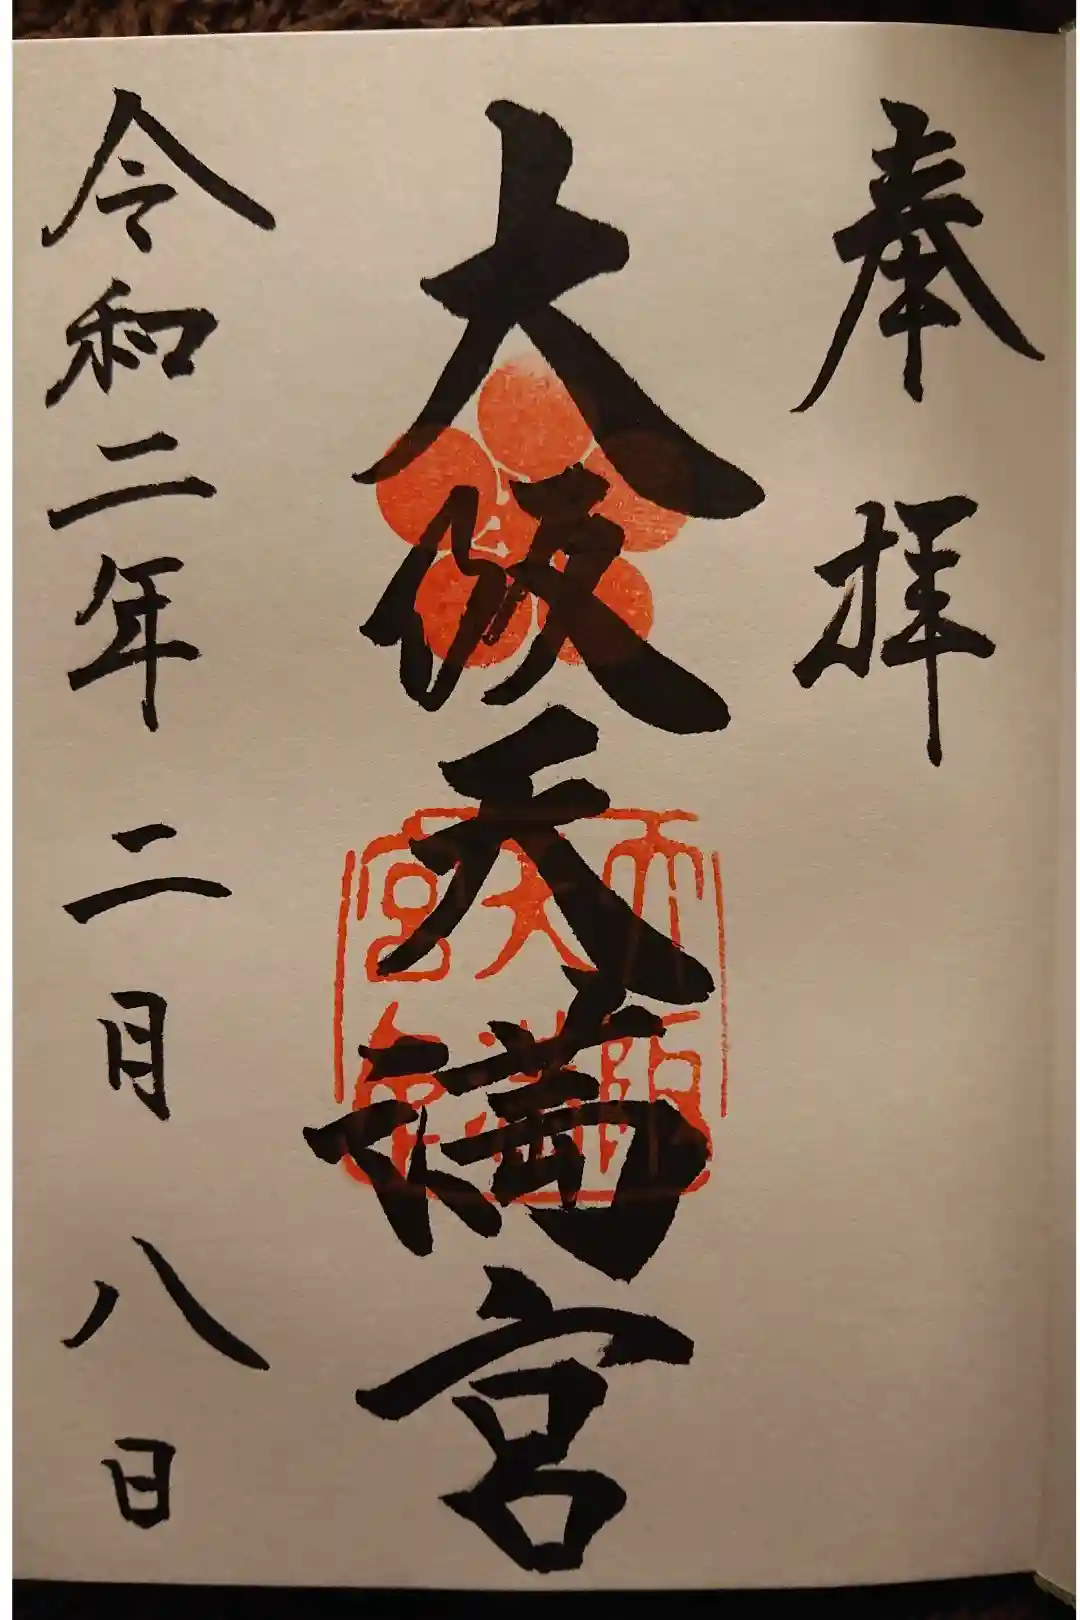 奉拝
大阪天満宮
大阪天満宮印
令和二年二月八日